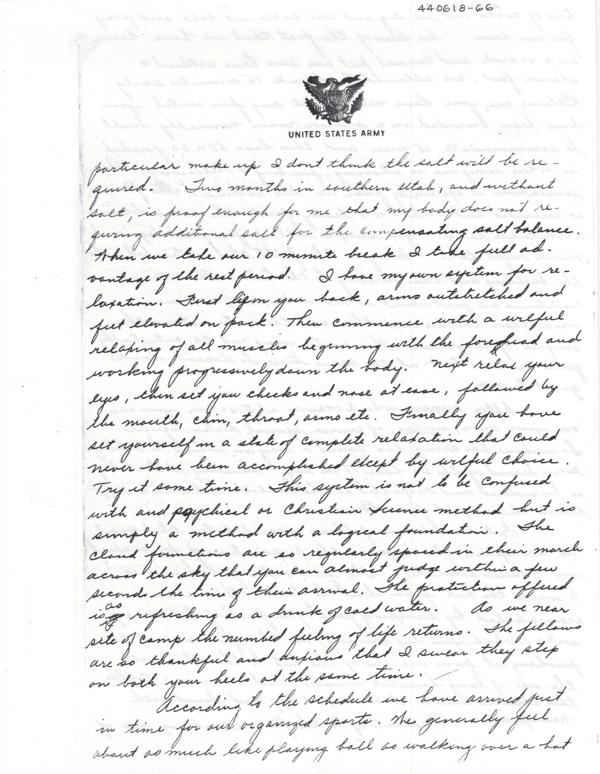 440618-66
UNITED STATES ARMY
particular make up I dont think the salt will be re-
quired. Two months in southern Utah, and without
salt, is proof enough for me that my body does not re-
quiring additional salt for the compensating salt balance.
When we take our 10 minute break I take full ad-
vantage of the rest period. I have my own system for re-
laxation. First lye on you back, arms outstretched and
feet elevated on pack. Then commence with a wilful
relaxing of all muscles beginning with the forehead and
working progressively down the body. Next relax your
eyes, then set you cheeks and nose at ease, followed by
the mouth, chin, throat, arms etc. Finally you have
set yourself in a state of complete relaxation that could
never have been accomplished except by wilful choice.
Try it some time. This system is not to be confused
with and psychical or Christian Science method but is
simply a method with a logical foundation. The
cloud formations are so regularly spaced in their march
across the sky that you can almost judge within a few
seconds the time of their arrival. The protection offered
is as refreshing as a drink of cold water. As we near
site of camp the numbed feeling of life returns. The fellows
are so thankful and anxious that I swear they step
on both your heels at the same time.
According to the schedule we have arrived just
in time for our organized sports. We generally feel
about as much like playing ball as walking over a hot